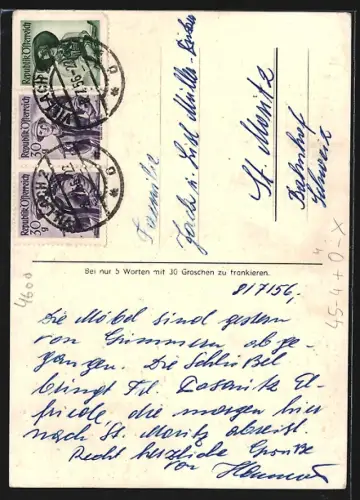 Republik Österreich
VILLACH 2
Republik Österreich
30 g
Republik Österreich
30 g
VILLACH 2
Familie
Jack u. Lisl Müller-
St. Moritz
Bahnhof
Schweiz
Bei nur 5 Worten mit 30 Groschen zu frankieren.
8/7/56,
Die Möbel sind gestern
von Gummern abge-
gangen. Die Schlüßel
bringt Frl. El-
friede, die morgen hier
nach St. Moritz abreist.
Recht herzliche Grüße
von
4600
45-4+0-x